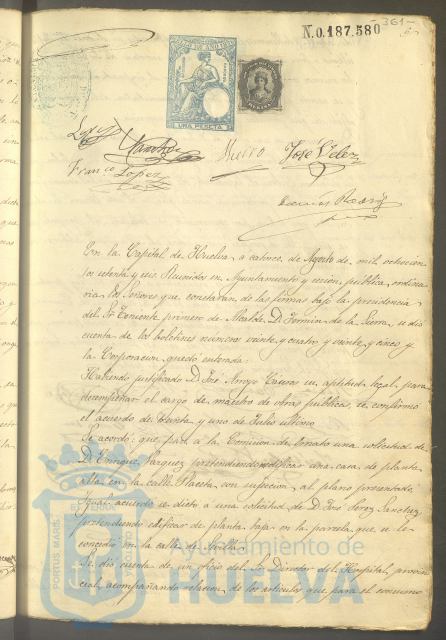 N.0.187.580
361
UNA PESETA
José Velez
Franco Lopez
En la Capital de Huelva, a catorce de Agosto de mil ochocien
tos setenta y seis. Reunidos en Ayuntamiento y sesion pública, ordina
ria los Señores que constaran de las firmas bajo la presidencia
del Sr. Teniente primero de Alcalde D. Fermin de la Sierra, se dio
cuenta de los boletines números veinte y cuatro y veinte y cinco y
la Corporacion quedó enterada:
Habiendo justificado D. José Arroyo su aptitud legal para
desempeñar el cargo de maestro de obras públicas, se confirmó
el acuerdo de treinta y uno de Julio último
Se acordó: que pase a la Comision de Ornato una solicitud de
D. Enrique Vazquez pretendiendo edificar una casa de planta
alta en la calle Placeta con sujecion al plano presentado
Igual acuerdo se dictó a una solicitud de D. José Perez Sanchez
pretendiendo edificar de planta baja en la parcela que se le
concedió en la calle de Sevilla
Se dió cuenta de un oficio del Sr. Director del Hospital provin
cial, acompañando relacion de los articulos que para el consumo
PORTUS MARIS ET TERRAE
Ayuntamiento de
HUELVA